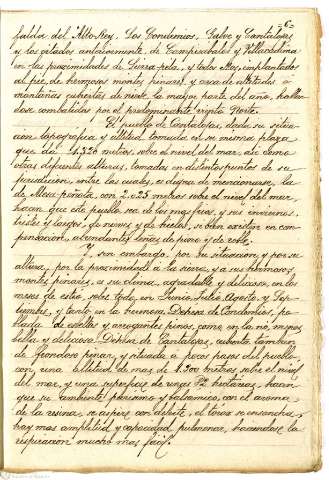 62
falda del Alto Rey, Los Condemios, Galve y Cantalojas
y los citados anteriormente, de Campisabalos y Villacadima
en las proximidades de Sierra-pela, y todos ellos, implantados
al pie de hermosos montes pinares, y cerca de altitudes o
montañas cubiertas de nieve la mayor parte del año, hallan-
dose combatidas por el predominante viento Norte.
El pueblo de Cantalojas, dada su situa-
cion topográfica y altitud, tomada en su misma plaza
que da 1.320 metros, sobre el nivel del mar, asi como
otras diferentes alturas, tomadas en distintos puntos de su
jurisdiccion, entre las cuales, es digna de mencionarse, la
de Mesa peñota, con 2.025 metros sobre el nivel del mar
hacen que este pueblo, sea de los mas frios, y sus inviernos,
tristes y largos, de nieves y de hielos, si bien existen en com-
pensacion, abundantes leñas de pino y de roble.
Y sin embargo por su situacion, y por su
altura, por la proximidad a la sierra, y a sus hermosos
montes pinares, es su clima, agradable y delicioso, en los
meses de estio, sobre todo, en Junio, Julio, Agosto, y Sep-
tiembre, y tanto en la hermosa Dehesa de Condemios, po-
blada de esbeltos y arrogantes pinos, como en la no, menos
bella y deliciosa Dehesa de Cantalojas, cubierta tambien
de frondoso pinar, y situada a pocos pasos del pueblo,
con una altitud de mas de 1.300 metros sobre el nivel
del mar, y una superficie de unas hectareas, hacen
que su ambiente purisimo y balsamico, con el aroma,
de la resina, se aspire con deleite, el torax se ensancha,
hay mas amplitud y capacidad pulmonar, haciendose, la
respiracion mucho mas facil.